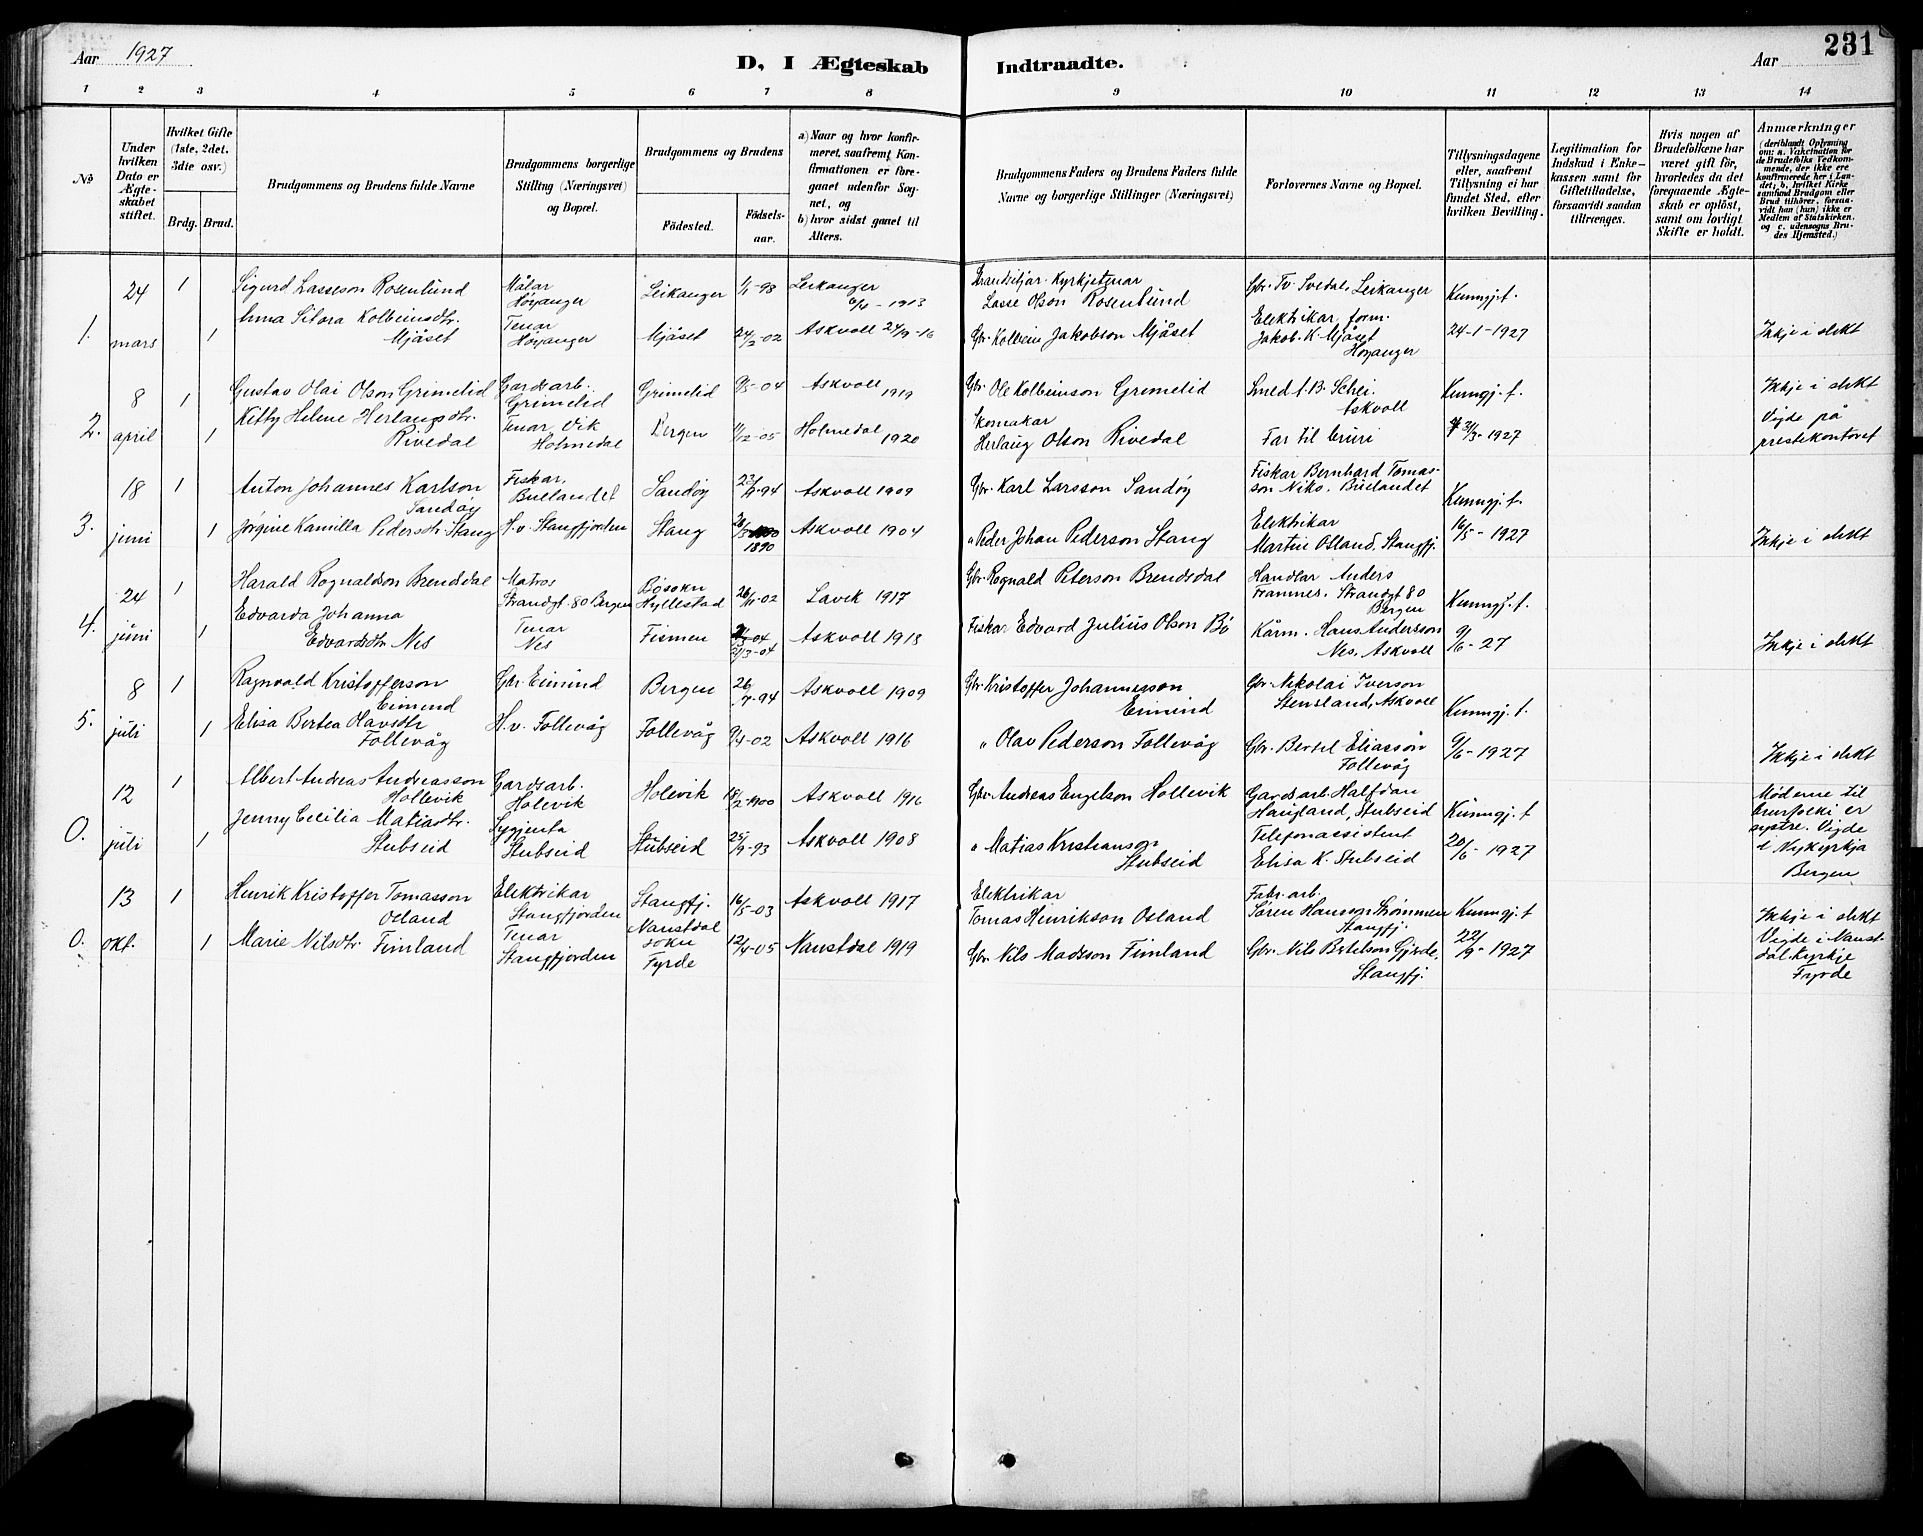 Aar 1927
D, I Ægteskab Indtraadte.
Aar
231
1 2 3 4 5 6 7 8 9 10 11 12 13 14
№
Under hvilken Dato er Ægteskabet stiftet.
Hvilket Gifte (1ste, 2det, 3die osv.)
Brdg. Brud.
Brudgommens og Brudens fulde Navne
Brudgommens borgerlige Stilling (Næringsvei) og Bopæl.
Brudgommens og Brudens
Födested. Födsels-aar.
a) Naar og hvor konfirmeret, saafremt Konfirmationen er foregaaet udenfor Sognet, og
b) hvor sidst gaaet til Alters.
Brudgommens Faders og Brudens Faders fulde Navne og borgerlige Stillinger (Næringsvei)
Forlovernes Navne og Bopæl.
Tillysningsdagene eller, saafremt Tillysning ei har fundet Sted, efter hvilken Bevilling.
Legitimation for Indskud i Enkekassen samt for Giftetilladelse, forsaavidt saadan tiltrænges.
Hvis nogen af Brudefolkene har været gift før, hvorledes da det foregaaende Ægteskab er opløst, samt om lovligt Skifte er holdt.
Anmærkninger (deriblandt Oplysning om: a. Vakcination for de Brudefolks Vedkommende, der ikke ere konfirmerede her i Landet; b. hvilket Kirkesamfund Brudgom eller Brud tilhører, forsaavidt han (hun) ikke er Medlem af Statskirken, og c. udensogns Brudes Hjemsted.)
24 1 Sigurd Lasseson Rosenlund Målar Høyanger Leikanger 1/1-98 Leikanger 6/4-1913 Strandsitjar. Kyrkjetenar Lasse Olson Rosenlund Gbr. Tv. Svedal, Leikanger Kunngj. f.
1. mars 1 Anna Sitora Kolbeinsdtr. Mjåset Tenar Høyanger Mjåset 24/2-02 Askvoll 24/9-16 Gbr. Kolbein Jakobson Mjåset Elektrikar, form. Jakob K. Mjåset Høyanger 24-1-1927 Inkje i slekt
8 1 Gustav Olai Olson Grimelid Gardsarb. Grimelid Grimelid 9/5-04 Askvoll 1919 Gbr. Ole Kolbeinson Grimelid Smed I. B. Schei. Askvoll Kunngj. f. Ikkje i slekt
2. april 1 Kitty Helene Herlaugsdtr. Rivedal Tenar, Vik Holmedal Bergen 11/12-05 Holmedal 1920 Skomakar Herlaug Olson Rivedal Far til bruri 31/3-1927 Vigde på prestekontoret
18 1 Anton Johannes Karlson Sandøy Fiskar, Buelandet Sandøy 23/9-94 Askvoll 1909 Gbr. Karl Larsson Sandøy Fiskar Bernhard Tomasson Niko. Buelandet Kunngj. f.
3. juni 1 Jørgine Kamilla Pedersdtr. Stang H. v. Stangfjorden Stang 26/3 1890 Askvoll 1904 " Peder Johan Pederson Stang Elektrikar Martin Osland, Stangfj. 16/5-1927 Inkje i slekt
24 1 Harald Rognaldson Brendsdal Matros Strandgt 80 Bergen Bøsokn Hyllestad 26/11-02 Lavik 1917 Gbr. Rognald Peterson Brendsdal Handlar Anders Framnes. Strandgt 80 Bergen Kunngj. f.
4. juni 1 Edvarda Johanna Edvardsdtr. Nes Tenar Nes Fismen 21/3-04 Askvoll 1918 Fiskar Edvard Julius Olson Bø Kårm. Hans Andersson Nes, Askvoll 9/6-27 Inkje i slekt
8 1 Ragnvald Kristofferson Eimind Gbr. Eimind Bergen 26/7-94 Askvoll 1909 Gbr. Kristoffer Johannesson Eimind Gbr. Nikolai Iverson Stensland, Askvoll Kunngj. f.
5. juli 1 Elisa Bertea Olavsdtr Follevåg H. v. Follevåg Follevåg 9/4-02 Askvoll 1916 " Olav Pederson Follevåg Gbr. Bertel Eliasson Follevåg 9/6-1927 Inkje i slekt
12 1 Albert Andreas Andreasson Hollevik Gardsarb. Holevik Holevik 18/2-1900 Askvoll 1916 Gbr. Andreas Engelson Hollevik Gardsarb. Halfdan Haugland, Stubseid Kunngj. f Møderne til brurfolki er systre. Vigde i Nykyrkja Bergen
0. juli 1 Jenny Cecilia Matiasdtr. Stubseid Sygjenta Stubseid Stubseid 25/9-93 Askvoll 1908 " Matias Kristianson Stubseid Telefonassistent Elisa K. Stubseid 20/6-1927
13 1 Henrik Kristoffer Tomasson Osland Elektrikar Stangfjorden Stangfj. 16/5-03 Askvoll 1917 Elektrikar Tomas Henrikson Osland Fabr. arb. Søren Hansson Strømmen Stangfj. Kunngj. f Inkje i slekt
0. okt. 1 Marie Nilsdtr. Fimland Tenar Stangfjorden Naustdal sokn Fyrde 12/4-05 Naustdal 1919 Gbr. Nils Madsson Fimland Gbr. Nils Bertelson Gjerde, Stangfj. 22/9-1927 Vigde i Naustdal Kyrkje Fyrde